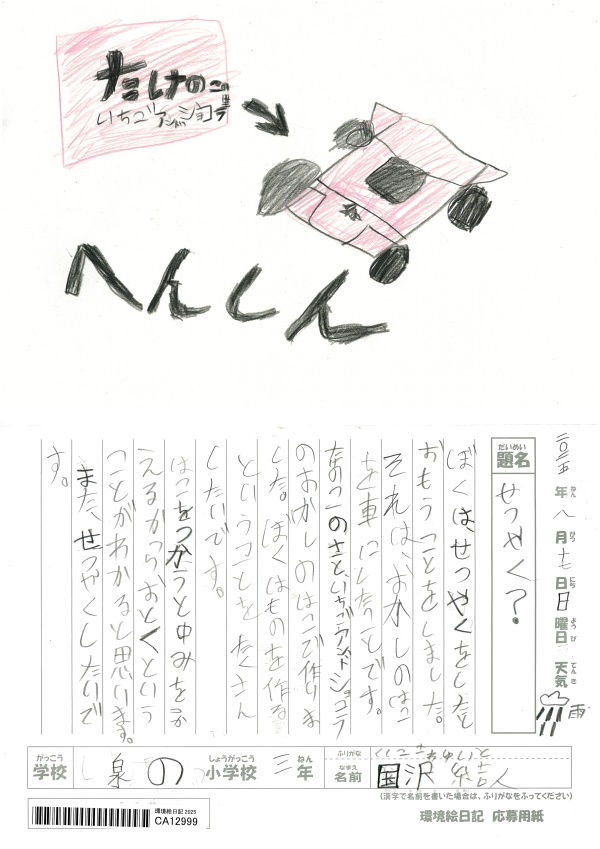 たけのこの里
いちごアンドショコラ
へんしん
二〇二五年八月十七日日曜日 天気 雨
ねん がつ にち ようび てんき
だいめい
題名 せつやく?
ぼくは、せつやくをしたと
おもうことをしました。
それは、おかしのはこ
を車にしたことです。
たけのこのさと、いちごアンドショコラ
のおかしのはこで作りま
した。ぼくはものを作る
ということをたくさん
したいです。
はこをつかうと中みをか
えるからおとくという
ことがわかると思います。
また、せつやくしたいで
す。
がっこう しょうがっこう ねん ふりがな
学校 泉の 小学校 三年
なまえ
名前 国沢 結吉人
(漢字で名前を書いた場合は、ふりがなをふってください)
環境絵日記 2025
CA12999
環境絵日記 応募用紙